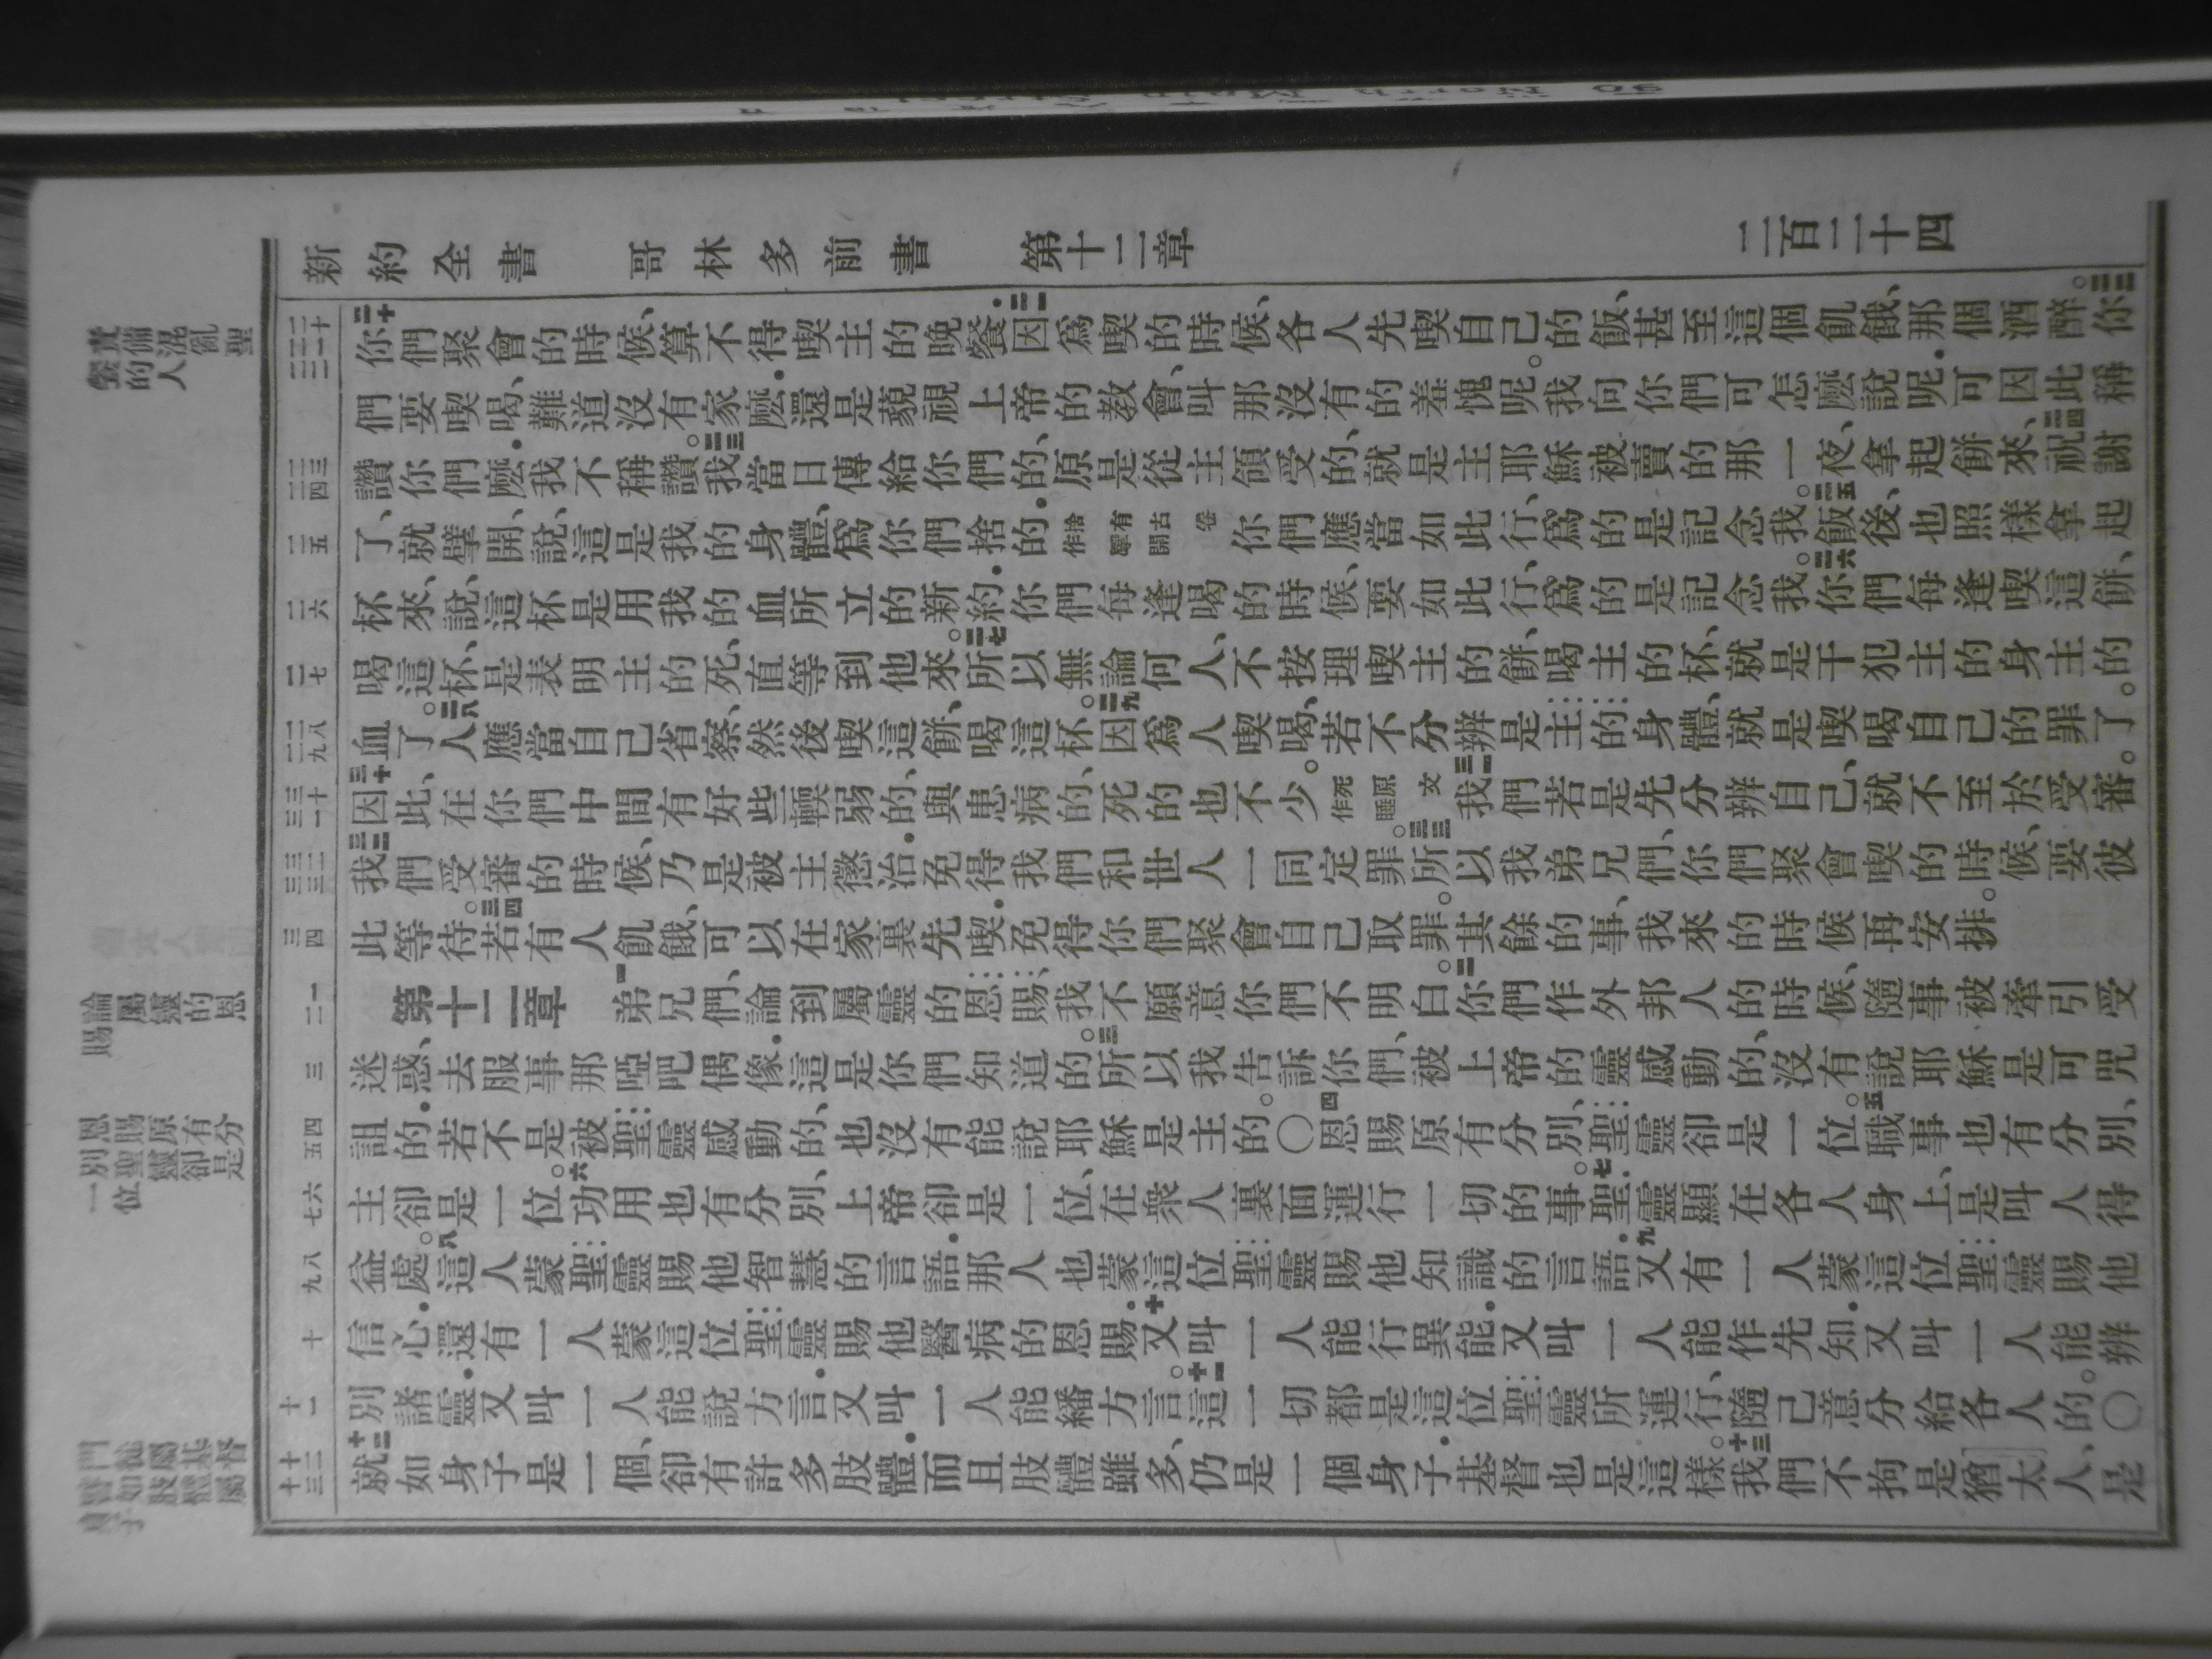 新約全書 哥林多前書 第十二章 三百二十四
二十你們聚會的時候、算不得喫主的晚餐.二一因爲喫的時候、各人先喫自己的飯、甚至這個飢餓、那個酒醉。二二你
們要喫喝、難道沒有家麽.還是藐視上帝的教會、叫那沒有的羞愧呢。我向你們可怎麽說呢.可因此稱
讚你們麽.我不稱讚。二三我當日傳給你們的、原是從主領受的、就是主耶穌被賣的那一夜、拿起餅來、二四祝謝
了、就擘開、說、這是我的身體、爲你們捨的.捨有古卷作擘開你們應當如此行、爲的是記念我。二五飯後、也照樣拿起
杯來、說、這杯是用我的血所立的新約.你們每逢喝的時候、要如此行、爲的是記念我。二六你們每逢喫這餅、
喝這杯、是表明主的死、直等到他來。二七所以無論何人、不按理喫主的餅、喝主的杯、就是干犯主的身主的
血了。二八人應當自己省察、然後喫這餅、喝這杯。二九因爲人喫喝、若不分辨是主的身體、就是喫喝自己的罪了。
三十因此、在你們中間有好些輭弱的、與患病的、死的也不少。死原文作睡三一我們若是先分辨自己、就不至於受審。
三二我們受審的時候、乃是被主懲治.免得我們和世人一同定罪。三三所以我弟兄們、你們聚會喫的時候、要彼
此等待。三四若有人飢餓、可以在家裏先喫.免得你們聚會自己取罪。其餘的事、我來的時候再安排。
第十二章 一弟兄們、論到屬靈的恩賜、我不願意你們不明白。二你們作外邦人的時候、隨事被牽引受
迷惑、去服事那啞吧偶像.這是你們知道的。三所以我告訴你們、被上帝的靈感動的、沒有說耶穌是可咒
詛的.若不是被聖靈感動的、也沒有能說耶穌是主的。〇四恩賜原有分別、聖靈卻是一位。五職事也有分別、
主卻是一位。六功用也有分別、上帝卻是一位、在衆人裏面運行一切的事。七聖靈顯在各人身上、是叫人得
益處。八這人蒙聖靈賜他智慧的言語.那人也蒙這位聖靈賜他知識的言語.九又有一人蒙這位聖靈賜他
信心.還有一人蒙這位聖靈賜他醫病的恩賜.十又叫一人能行異能.又叫一人能作先知.又叫一人能辨
別諸靈.又叫一人能說方言.又叫一人能繙方言。十一這一切都是這位聖靈所運行、隨己意分給各人的。〇
十二就如身子是一個、卻有許多肢體.而且肢體雖多、仍是一個身子.基督也是這樣。十三我們不拘是猶太人、是
責備混亂聖
餐的人
論屬靈的恩
賜
恩賜原有分
別聖靈卻是
一位